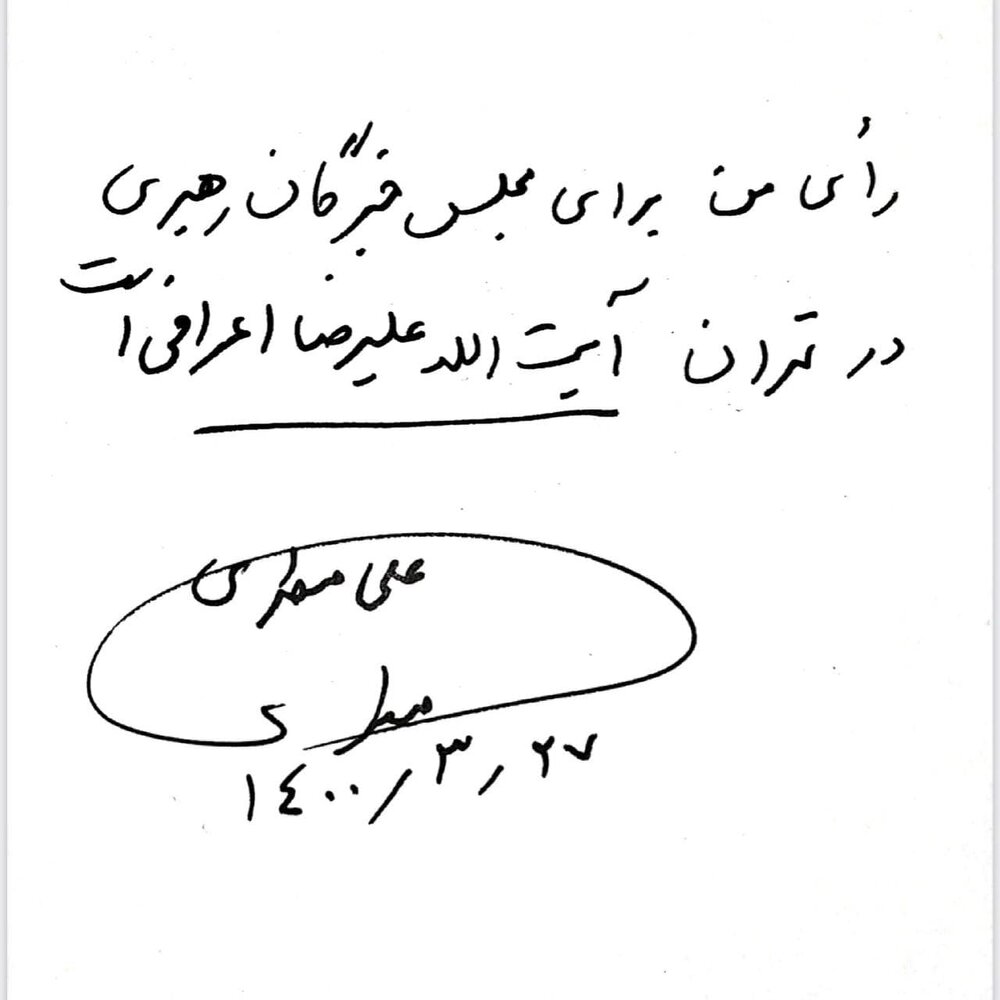 رأی من برای مجلس خبرگان رهبری
در تهران آیت الله علیرضا اعرافی است
علی مطهری
مطهری
۱۴۰۰/۳/۲۷